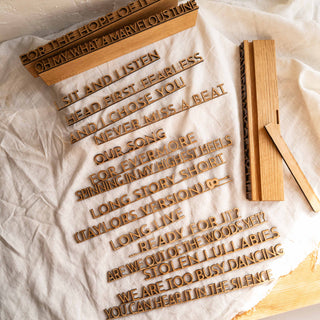 FOR THE HOPE OF IT
OH MY WHAT A MARVELOUS TUNE
SIT AND LISTEN
HEAD FIRST FEARLESS
AND I CHOSE YOU
NEVER MISS A BEAT
OUR SONG
FOR EVERMORE
STUNNING IN MY HIGHEST HEELS
LONG STORY SHORT
(TAYLOR'S VERSION)
LONG LIVE
...READY FOR IT
ARE WE OUT OF THE WOODS YET?
STOLEN LULLABIES
WE ARE TOO BUSY DANCING
YOU CAN HEAR IT IN THE SILENCE